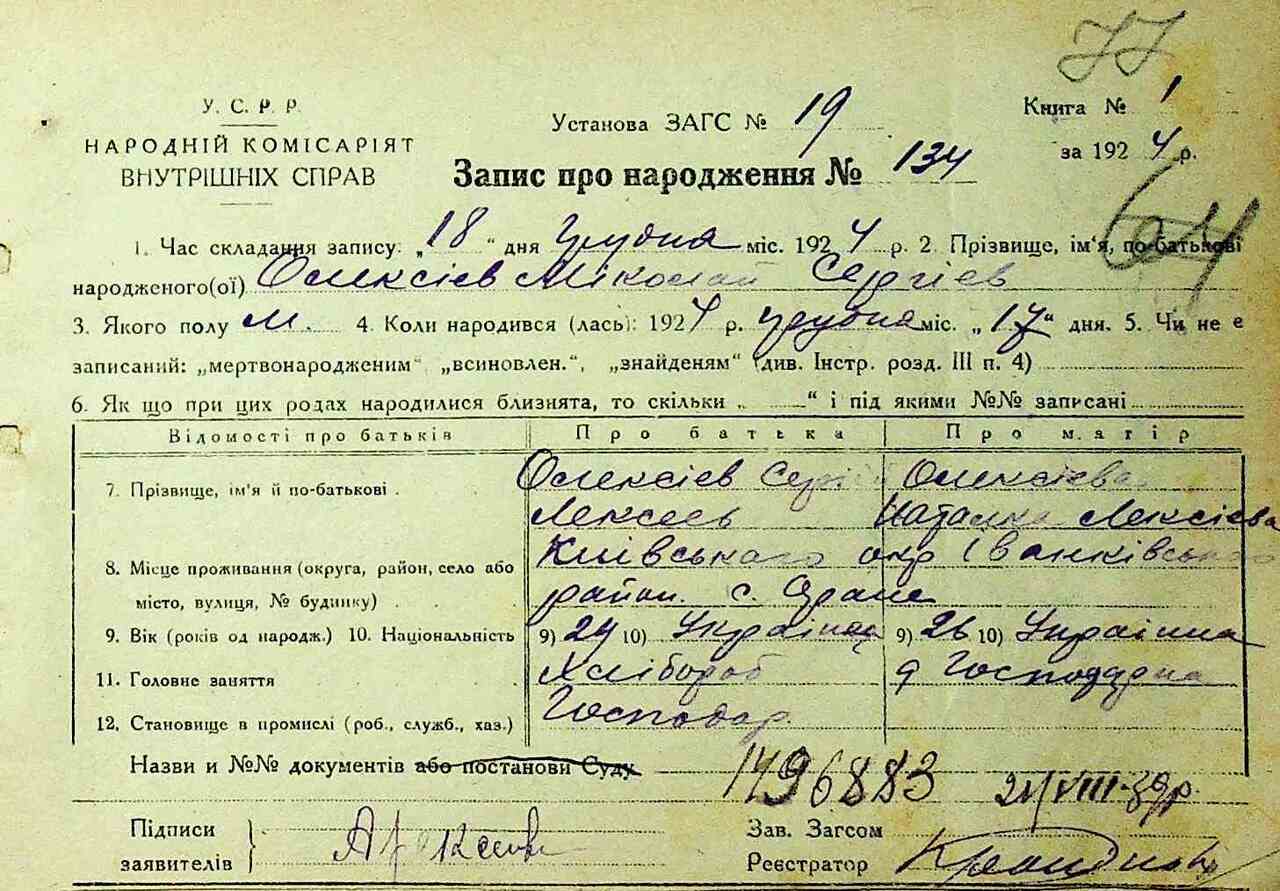 У. С. Р. Р.
НАРОДНІЙ КОМІСАРІЯТ
ВНУТРІШНІХ СПРАВ
Установа ЗАГС № 19
Книга № 1
за 1924 р.
Запис про народження № 134
1. Час складання запису: „18" дня Грудня міс. 1924 р. 2. Прізвище, ім'я, по-батькові
народженого(ої) Олексієв Міколай Сергієв
3. Якого полу М. 4. Коли народився (лась): 1924 р. грудня міс. „17" дня. 5. Чи не є
записаний: „мертвонародженим" „всиновлен.", „знайденям" (див. Інстр. розд. III п. 4)
6. Як що при цих родах народилися близнята, то скільки „ " і під якими №№ записані
Відомості про батьків Про батька Про матір
7. Прізвище, ім'я й по-батькові Олексієв Сергій Олексієва
Лексеев Наталка Лексієва
8. Місце проживання (округа, район, село або Київського окр Іванківського
місто, вулиця, № будинку) район. с.
9. Вік (років од народж.) 10. Національність 9) 24 10) Українець 9) 26 10) Українка
11. Головне заняття Хлібороб Господарка
12. Становище в промислі (роб., служб., хаз.) Господар
Назви и №№ документів або постанови Суду 1496883 VIII-39р.
Підписи
заявителів
Зав. Загсом
Реєстратор